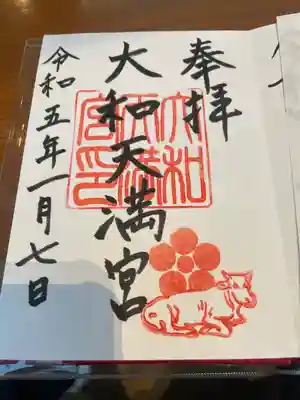 奉拝
大和天満宮
大和
天満
宮印
令和五年一月七日